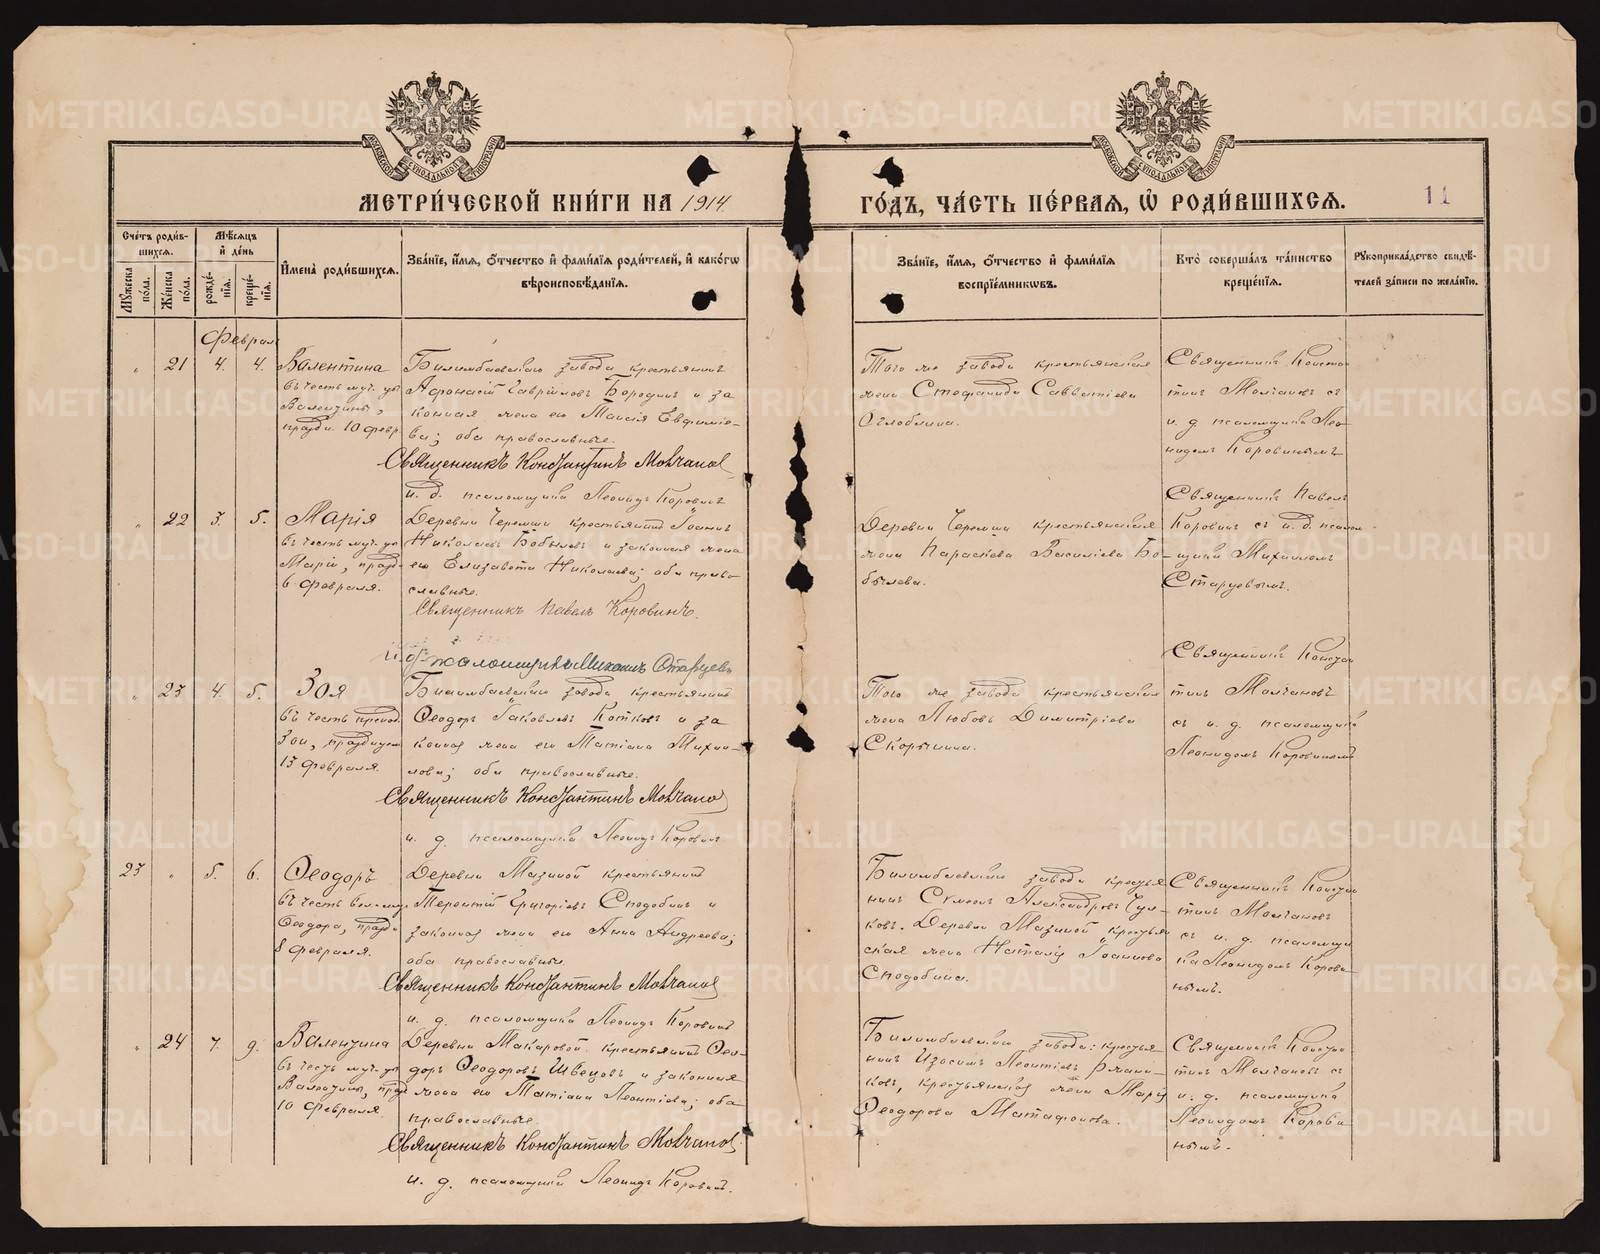 МЕТРИ́ЧЕСКОЙ КНИ́ГИ НА 1914
ГО́ДЪ, ЧА́СТЬ ПЕ́РВАѦ, Ѽ РОДИ́ВШИХСѦ.
11
Сче́тъ роди́в-
шихсѧ.
Му́жеска по́ла.
Же́нска по́ла.
Мѣ́сѧцъ и҆ де́нь
рожде́-
нїѧ.
креще́-
нїѧ.
И҆мена̀ роди́вшихсѧ.
Зва́нїе, и҆́мѧ, ѻ҆́тчество и҆ фами́лїѧ роди́телей, и҆ како́гѡ
вѣроисповѣ́данїѧ.
Зва́нїе, и҆́мѧ, ѻ҆́тчество и҆ фами́лїѧ
воспрїе́мникѡвъ.
Кто̀ соверша́лъ та́инство
креще́нїѧ.
Рꙋкоприкла́дство свидѣ́-
телей за́писи по жела́нїю.
Феврал
" 21 4. 4.
Валентина
въ честь муч. цы
Валентины,
праздн. 10 февр.
Билимбаевскаго завода крестьянинъ
Афонасій Гавріиловъ Бородинъ и за
конная жена его Таисія Евфиміе-
ва; оба православные.
Священникъ Константинъ Молчановъ
и. д. псаломщика Леонидъ Коровинъ
Того же завода крестьянская
жена Стефанида Савватіева
Оглоблина.
Священникъ Констан
тинъ Молчановъ съ
и. д. псаломщика Лео
нидомъ Коровинымъ
" 22 3. 5.
Марія
въ честь муч. цы
Маріи, празд.
6 февраля.
Деревни Черемши крестьянинъ Іоаннъ
Николаевъ Бобылевъ и законная жена
его Елизавета Николаева; оба право-
славные.
Священникъ Павелъ Коровинъ.
и. д. псаломщика Михаилъ Старцевъ
Деревни Черемши крестьянская
жена Параскева Василіева Бо-
былева.
Священникъ Павелъ
Коровинъ съ и. д. псалом-
щика Михаиломъ
Старцевымъ.
" 23 4. 5.
Зоя
въ честь препод.
Зои, празднуем
13 февраля.
Билимбаевскаго завода крестьянинъ
Ѳеодоръ Іаковлевъ Котковъ и за
конная жена его Татіана Михаи-
лова; оба православные.
Священникъ Константинъ Молчановъ
и. д. псаломщика Леонидъ Коровинъ
Того же завода крестьянская
жена Любовь Димитріева
Скорынина.
Священникъ Констан
тинъ Молчановъ
съ и. д. псаломщика
Леонидомъ Коровинымъ
23 " 5. 6.
Ѳеодоръ
въ честь вел. муч.
Ѳеодора, праздн
8 февраля.
Деревни Мазиной крестьянинъ
Терентій Григоріевъ Сподобинъ и
законная жена его Анна Андреева;
оба православные.
Священникъ Константинъ Молчановъ
и. д. псаломщика Леонидъ Коровинъ
Билимбаевскаго завода крестья
нинъ Симеонъ Александровъ Чул-
ковъ. Деревни Мазиной крестьян
ская жена Наталія Іоаннова
Сподобина.
Священникъ Констан
тинъ Молчановъ
съ и. д. псаломщи
ка Леонидомъ Корови
нымъ.
" 24 7. 9.
Валентина
въ честь муч. цы
Валентины, празд
10 февраля.
Деревни Макаровой крестьянинъ Ѳео-
доръ Ѳеодоровъ Швецовъ и законная
жена его Татіана Леонтіева; оба
православные
Священникъ Константинъ Молчановъ
и. д. псаломщика Леонидъ Коровинъ.
Билимбаевскаго завода: крестья-
нинъ Изосимъ Леонтіевъ
ковъ, крестьянская жена Марія
Ѳеодорова Матафонова.
Священникъ Констан
тинъ Молчановъ съ
и. д. псаломщика
Леонидомъ Корови
нымъ.
METRIKI.GASO-URAL.RU